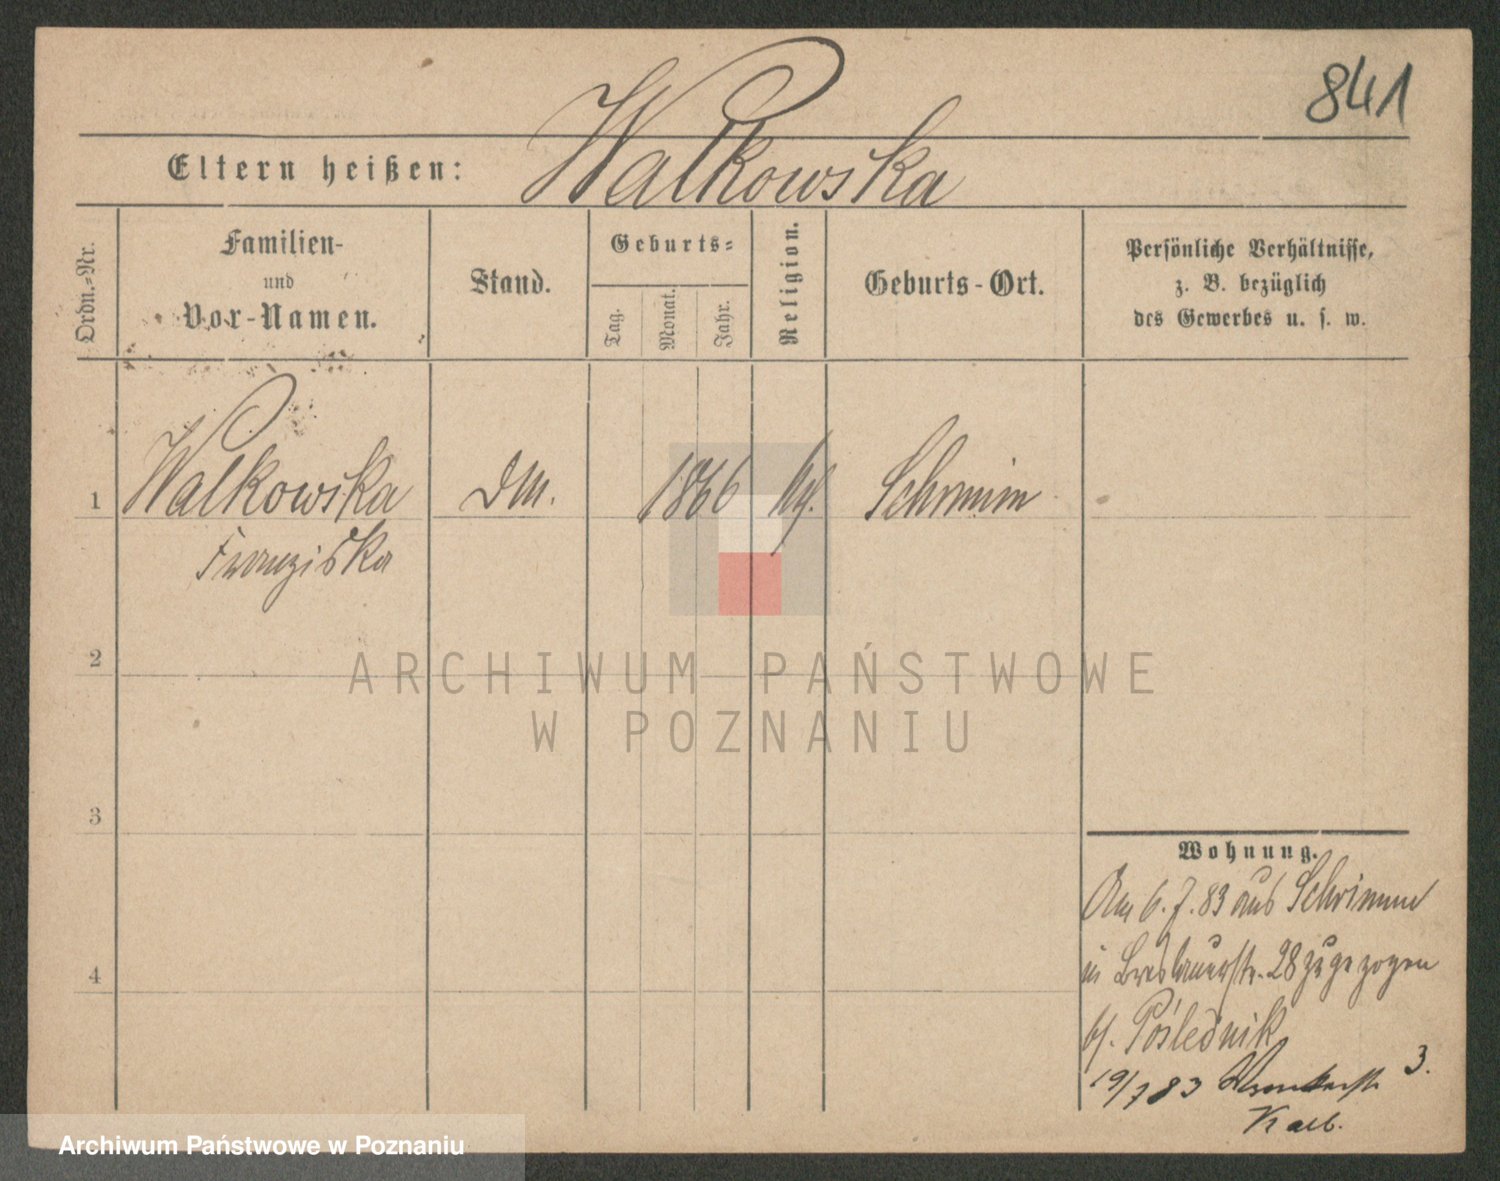 841
Walkowska
Eltern heißen:
Ordn.-Nr.
Familien-
und
Vor-Namen.
Stand.
Geburts-
Tag.
Monat.
Jahr.
Religion.
Geburts-Ort.
Persönliche Verhältnisse,
z. B. bezüglich
des Gewerbes u. s. w.
1 Walkowska DM. 1866 kth. Schrimm
Franziska
2
ARCHIWUM PAŃSTWOWE
W POZNANIU
3
4
Wohnung.
Am 6. 7. 83 aus Schrimm
in Breslauerstr. 28 zugezogen
b/. Poślednik
19/7 83 Wronkerstr 3.
Kalb.
Archiwum Państwowe w Poznaniu